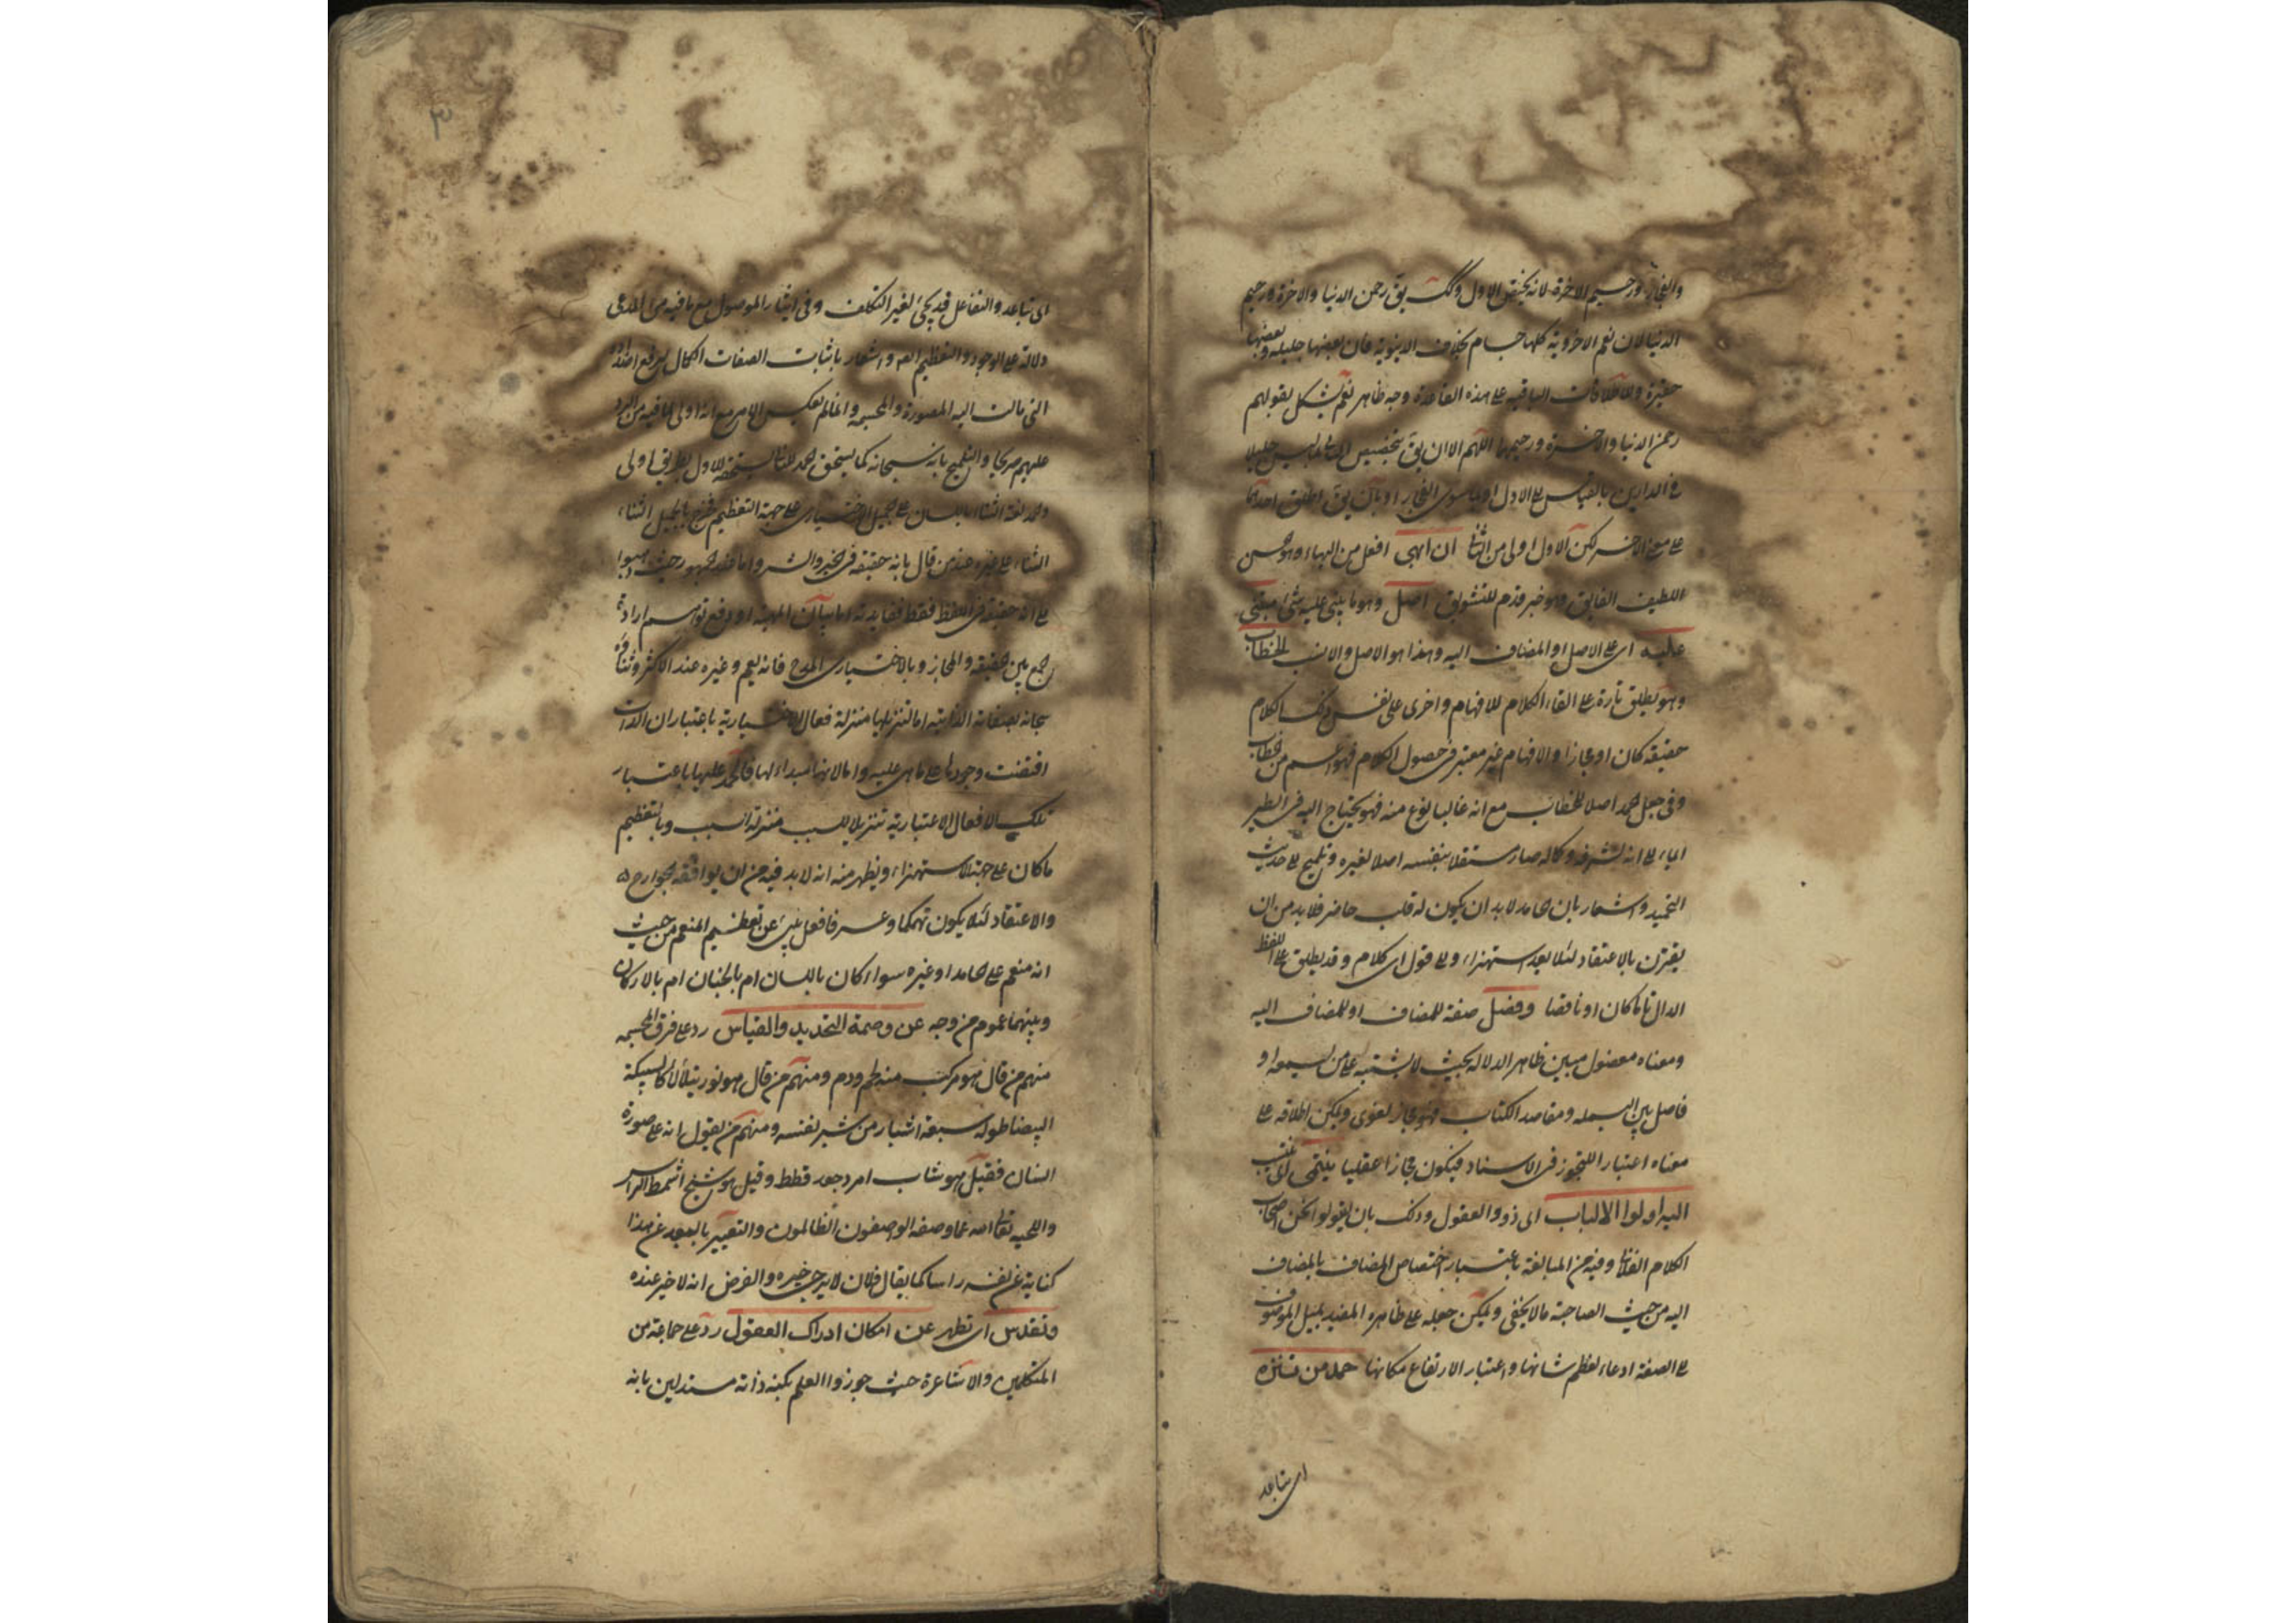 والفجار ورحيم الاخرة لانه يختص الاول وكك يق رحمن الدنيا والاخرة ورحيم
الدنيا لان نعم الاخروية كلها جسام بخلاف الدنيوية فان بعضها جليلة وبعضها
حقيرة وللاطلاقات الباقية على هذه القاعدة وجه ظاهر نعم يشكل بقولهم
رحمن الدنيا والاخرة ورحيمهما اللهم الا ان يق بتخصيص الثانى بما ليس جليلا
فى الدارين بالقياس على الاول او بما سوى الفجار او بان يق اطلق احدهما
على معنى الاخر لكن الاول اولى من الثانى ان ابهى افعل من البهاء وهو الحسن
اللطيف الفايق وهو خبر قدم للتشويق اصل وهو ما يبنى عليه شئ يبتنى
عليه اى على الاصل او المضاف اليه وهذا هو الاصل والانسب الخطاب
وهو يطلق تارة على القاء الكلام للافهام واخرى على نفس ذلك الكلام
حقيقة كان او مجازا والافهام غير معتبر فى حصول الكلام فهو اعم من الخطاب
وفى جعل الحمد اصلا للخطاب مع انه غالبا نوع منه فهو يحتاج اليه فى
ايماء الى انه لشرفه وكماله صار مستقلا بنفسه اصلا لغيره وتلميح الى حديث
التحميد واشعار بان الحامد لا بد ان يكون له قلب حاضر فلا بد من ان
يقترن بالاعتقاد لئلا يعد استهزاء وعلى قول اى كلام وقد يطلق على اللفظ
الدال تاما كان او ناقصا وفصل صفة للمضاف او للمضاف اليه
ومعناه مفصول مبين ظاهر الدلالة بحيث لا يشتبه على من يسمعه او
فاصل بين البسملة ومقاصد الكتاب فهو مجاز لغوى ويمكن اطلاقه على
معناه اعتبار التجوز فى الاسناد فيكون مجازا عقليا ينتمى اى ينتسب
اليه اولوا الالباب اى ذووا العقول وذلك بان يقولوا نحن اصحاب
الكلام الفلانى وفيه من المبالغة باعتبار اختصاص المضاف بالمضاف
اليه من حيث الصاحبية ما لا يخفى ويمكن جعله على ظاهره المفيد لميل الموصوف
الى الصفة ادعاء لعظم شانها واعتبار الارتفاع مكانها حمد من تنزه
اى تباعد
اى تباعد والتفاعل قد يجئ لغير التكلف وفى ايثار الموصول مع ما فيه من المدعى
دلالة على الوجود والتعظيم واشعار باثبات الصفات الكمال
التى مالت اليه المصورة والمجسمة وانما لم يعكس الامر مع انه اولى لما فيه من الرد
عليهم صريحا والتلميح بانه سبحانه كما يستحق الحمد للثانى يستحقه للاول بطريق اولى
والحمد لغة الثناء باللسان على الجميل الاختيارى على جهة التعظيم فخرج بالجميل الثناء
الثناء على غيره عند من قال بانه حقيقة فى الخير والشر واما عند الجمهور حيث ذهبوا
الى انه حقيقة فى اللفظ فقط ففايدته اما بيان المهية او دفع توهم ارادة
الجمع بين الحقيقة والمجاز وبالاختيارى المدح فانه يعم وغيره عند الاكثر وثناؤه
سبحانه بصفاته الذاتية اما لتنزيلها منزلة افعال الاختيارية باعتبار ان الذات
اقتضت وجودها على ما هى عليه واما لانها مبداء لها فالحمد عليها باعتبار
تلك الافعال الاعتبارية تنزيلا للسبب منزلة المسبب وبالتعظيم
ما كان على جهة الاستهزاء ويظهر منه انه لا بد فيه من ان يوافقه الجوارح
والاعتقاد لئلا يكون تهكما وعرفا فعل ينبئ عن تعظيم المنعم من حيث
انه منعم على الحامد او غيره سواء كان باللسان ام بالجنان ام بالاركان
وبينهما عموم من وجه عن وصمة التحديد والقياس رد على فرق المجسمة
منهم من قال هو مركب من لحم ودم ومنهم من قال هو نور يتلألأ كالسبيكة
البيضا طوله سبعة اشبار من شبر نفسه ومنهم من يقول انه على صورة
انسان فقيل هو شاب امرد جعد قطط وقيل هو شيخ اشمط الراس
واللحية تعالى الله عما وصفه الواصفون الظالمون والتعبير بالبعد عن هذا
كناية عن نفيه راسا كما يقال فلان لا يرجى خيره والغرض انه لا خير عنده
وتقدس اى تطهر عن امكان ادراك العقول رد على جماعة من
المتكلمين والاشاعرة حيث جوزوا العلم بكنه ذاته مستدلين بانه